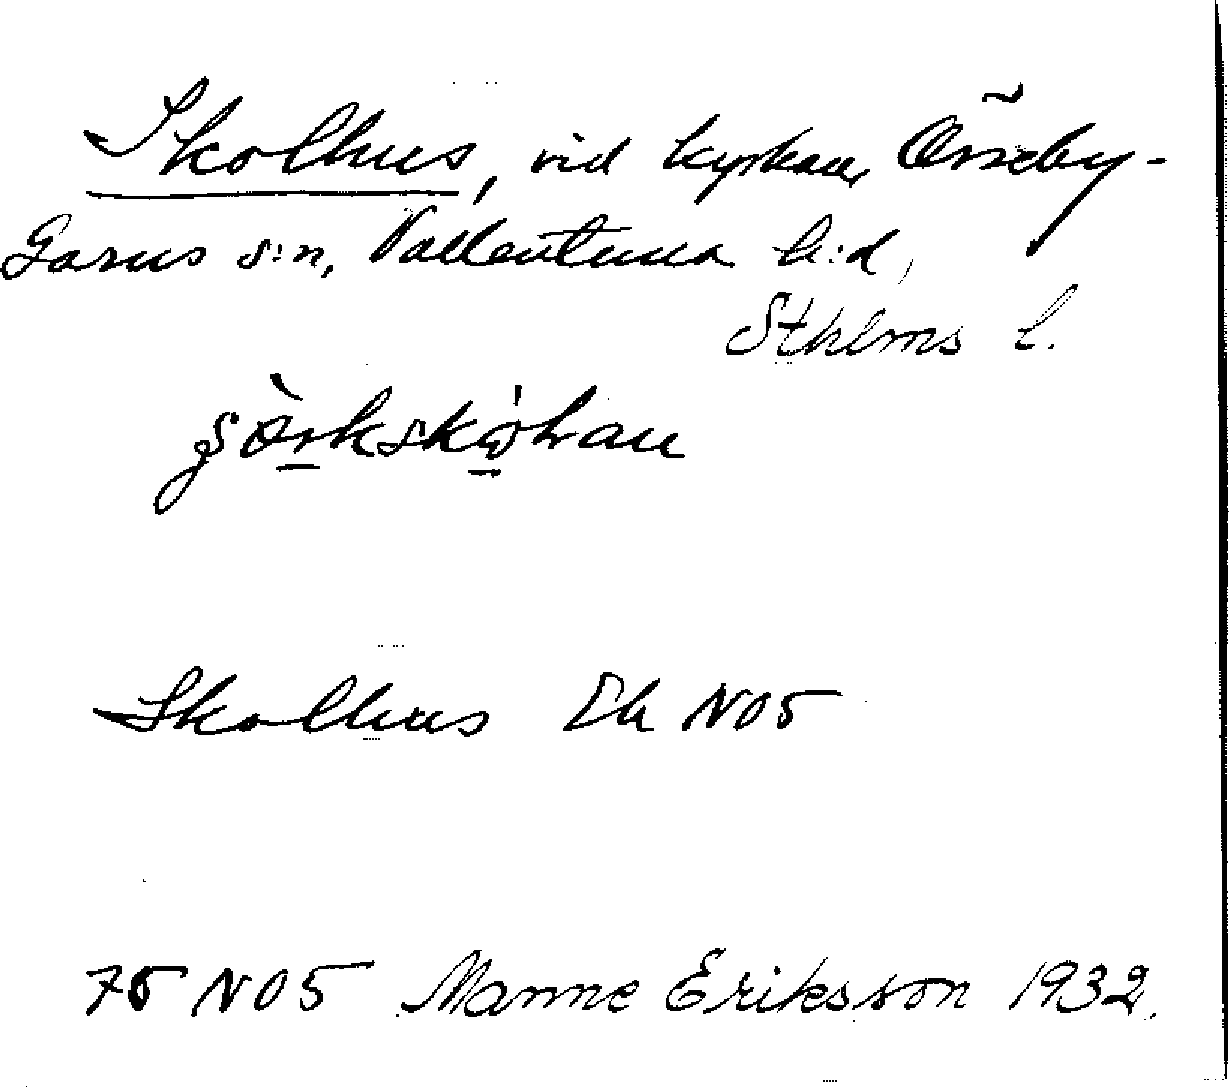 Skolhus, vid kyrkan, Össeby-
Garns s:n, Vallentuna h:d,
Sthlms l.
Skolhus Ek NO5
75 NO5 Manne Eriksson 1932.